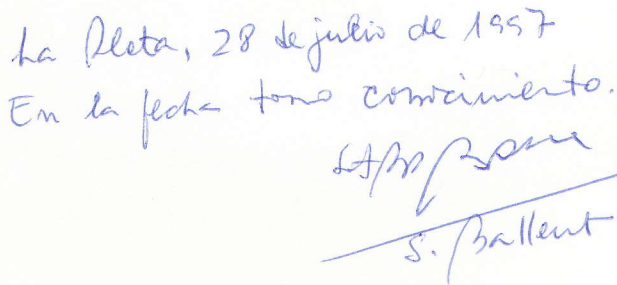 La Plata, 28 de julio de 1997
En la fecha tomo conocimiento.
S. Ballent